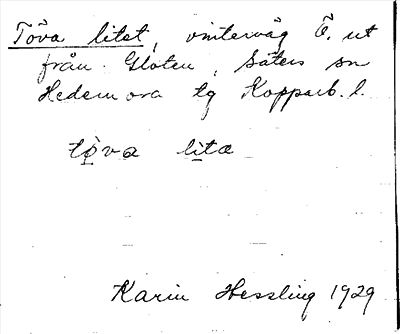 Töva litet, vinterväg Ö. ut
från Gloten, Säters sn
Hedemora tg Kopparb. l.
töva lita
Karin Hessling 1929